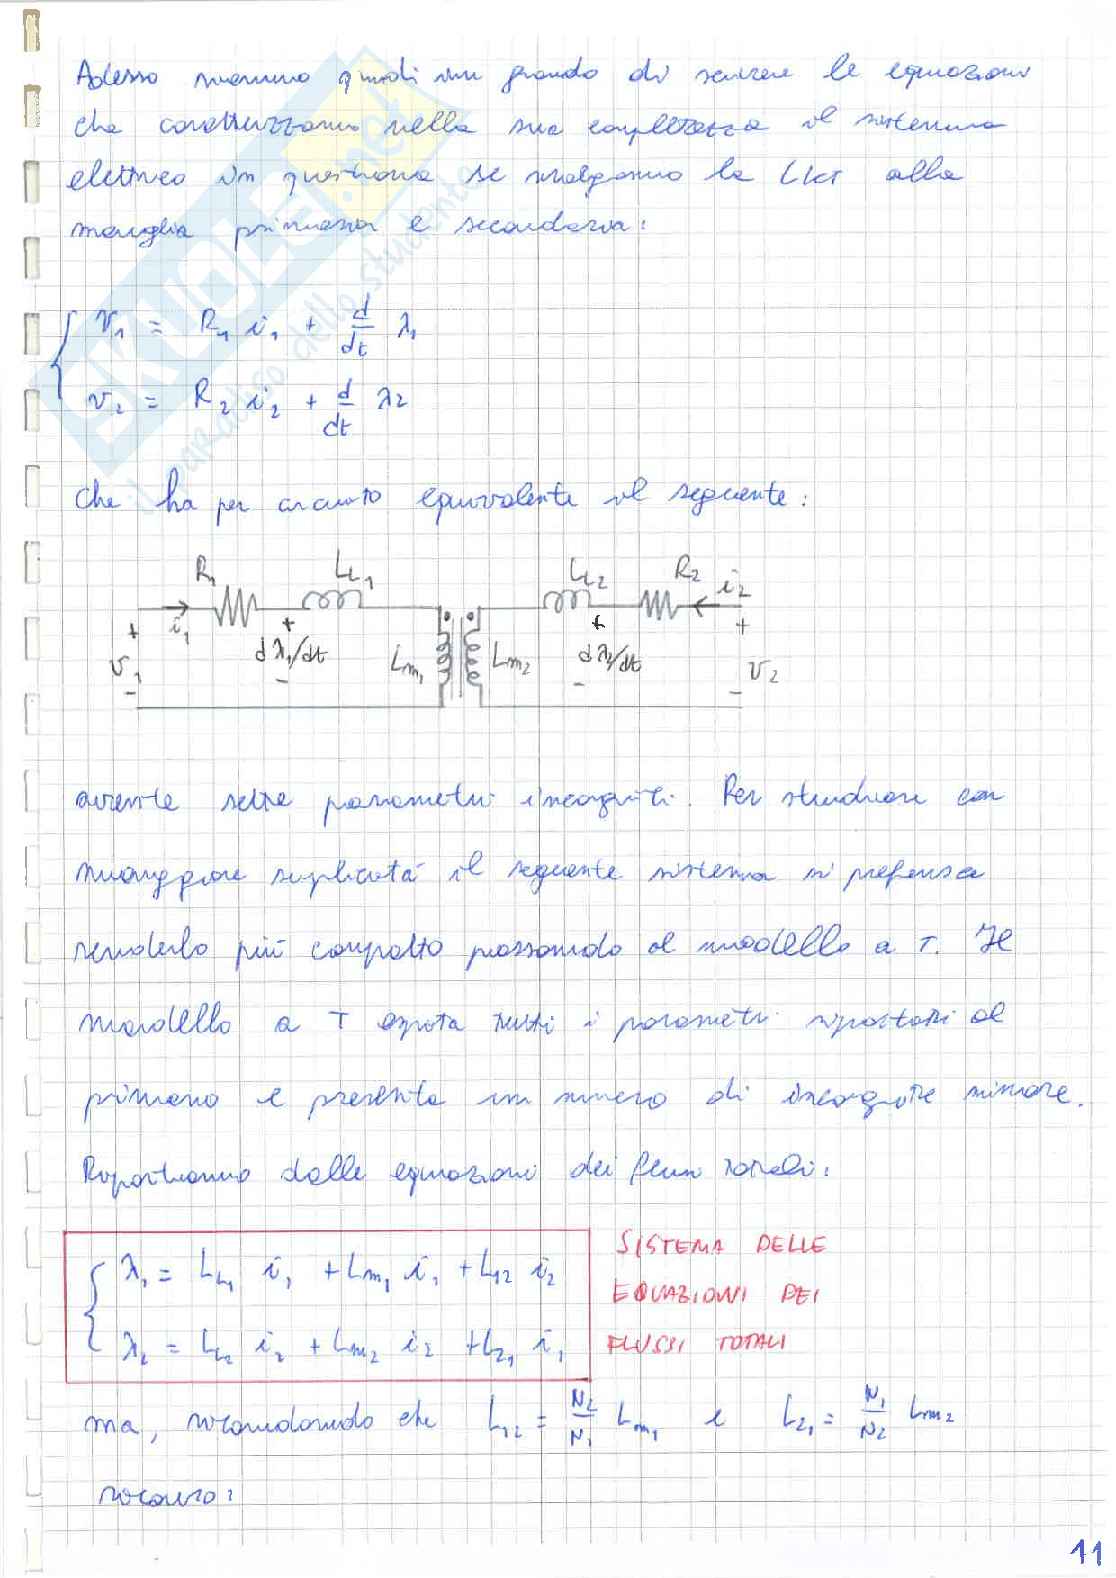 Adesso siamo quindi in grado di scrivere le equazioni
che caratterizzano nella sua completezza il sistema
elettrico in questione se svolgiamo la LKT alla
maglia primaria e secondaria:
v₁ = R₁ i₁ + d/dt λ₁
v₂ = R₂ i₂ + d/dt λ₂
che ha per circuito equivalente il seguente:
R₁ LL₁ LL₂ R₂ i₂
i₁ + dλ₁/dt - Lm₁ Lm₂ + dλ₂/dt -
+ v₁ - + v₂ -
avente sette parametri incogniti. Per studiare con
maggiore semplicità il seguente sistema si preferisce
renderlo più compatto passando al modello a T. Il
modello a T tutti i parametri riportati al
primario e presenta un numero di incognite minore.
Ripartiamo dalle equazioni dei flussi totali:
λ₁ = LL₁ i₁ + Lm₁ i₁ + L₁₂ i₂
λ₂ = LL₂ i₂ + Lm₂ i₂ + L₂₁ i₁
SISTEMA DELLE
EQUAZIONI DEI
FLUSSI TOTALI
ma, ricordando che L₁₂ = N₂/N₁ Lm₁ e L₂₁ = N₁/N₂ Lm₂
11
SKUOLA.net
il paradiso dello studente